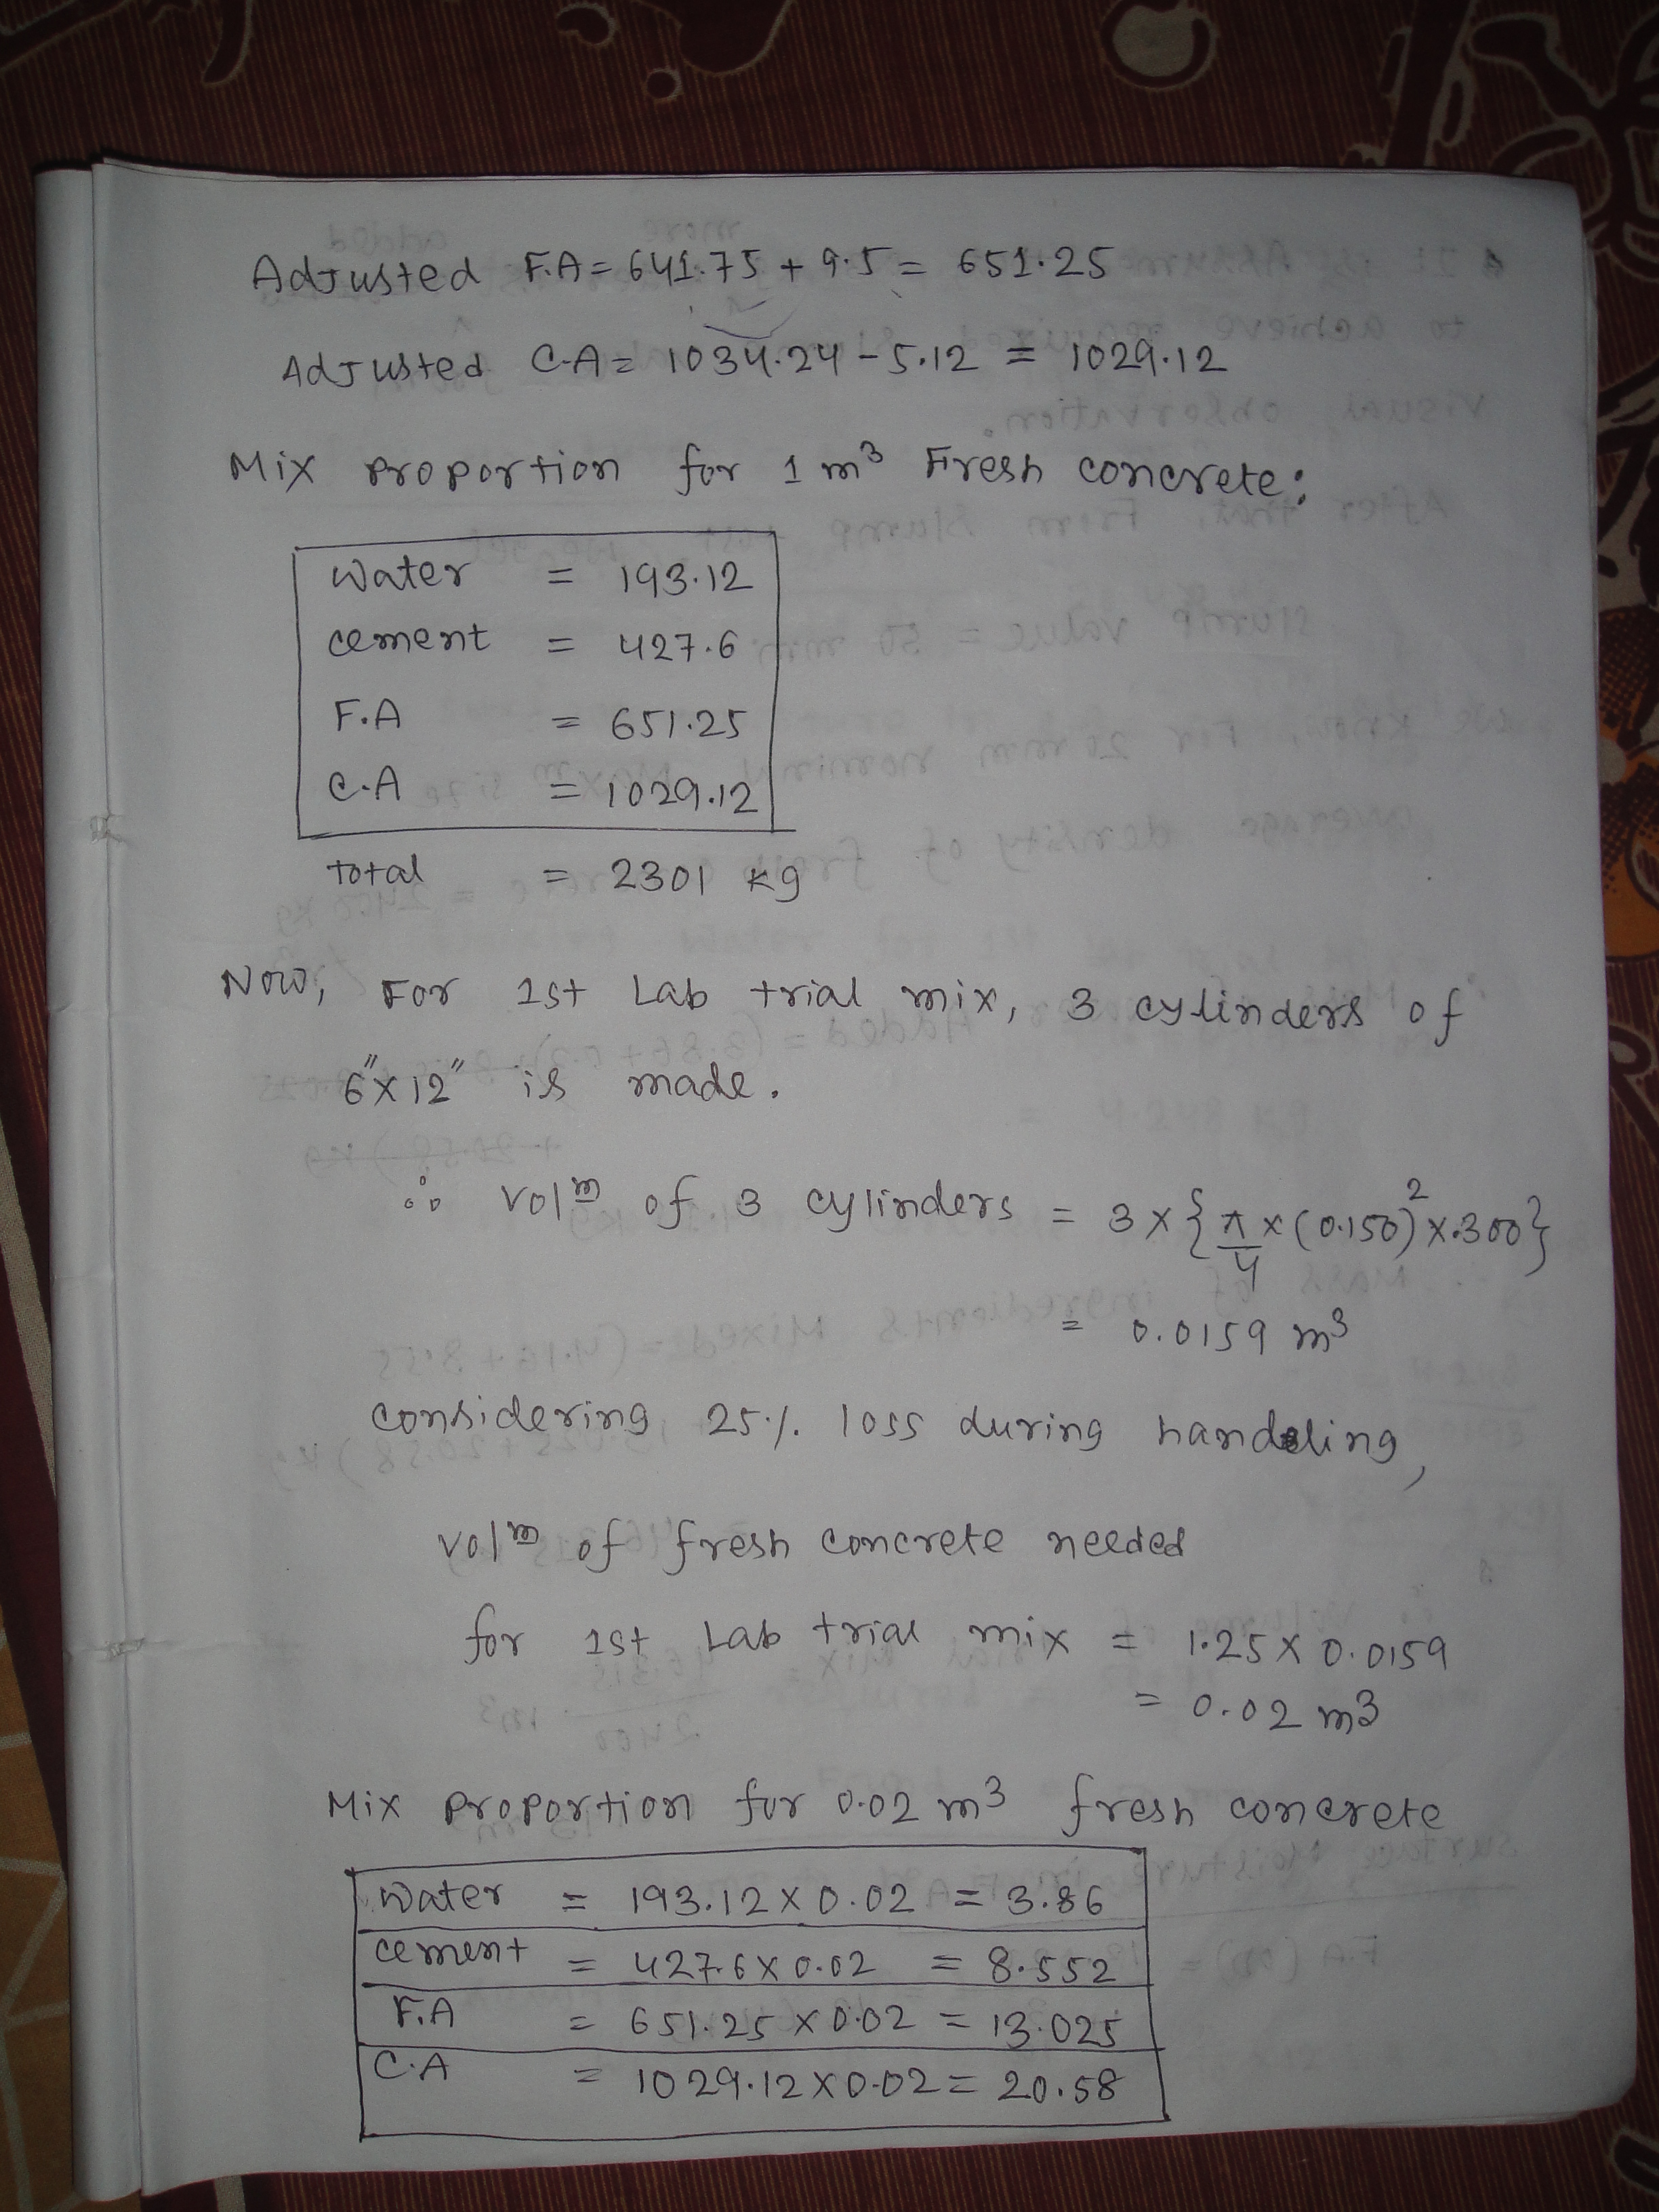 Adjusted F.A = 641.75 + 9.5 = 651.25
Adjusted C.A = 1034.24 - 5.12 = 1029.12
Mix proportion for 1 m³ Fresh concrete:
Water = 193.12
cement = 427.6
F.A = 651.25
C.A = 1029.12
total = 2301 kg
Now, For 1st Lab trial mix, 3 cylinders of
6"x12" is made.
∴ volm of 3 cylinders = 3 x {π/4 x (0.150)² x .300}
= 0.0159 m³
considering 25% loss during handling,
volm of fresh concrete needed
for 1st Lab trial mix = 1.25 x 0.0159
= 0.02 m3
Mix proportion for 0.02 m³ fresh concrete
Water = 193.12 x 0.02 = 3.86
cement = 427.6 x 0.02 = 8.552
F.A = 651.25 x 0.02 = 13.025
C.A = 1029.12 x 0.02 = 20.58